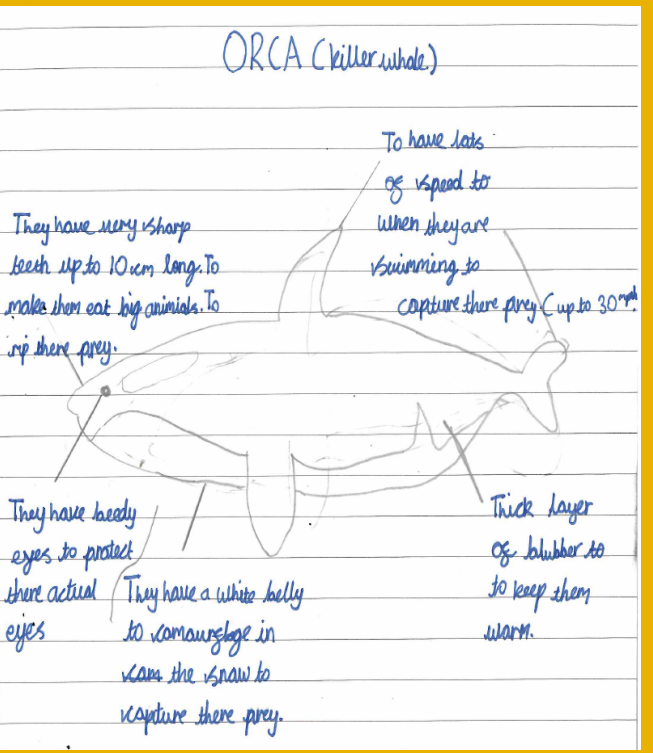 ORCA (killer whale)
To have lots
of speed to
when they are
swimming to
capture there prey (up to 30 mph
They have very sharp
teeth up to 10 cm long. To
make them eat big animials. To
rip there prey.
They have beedy
eyes to protect
there actual
eyes
They have a white belly
to camaurgloge in
cam the snow to
capture there prey.
Thick layer
of blubber to
to keep them
warm.